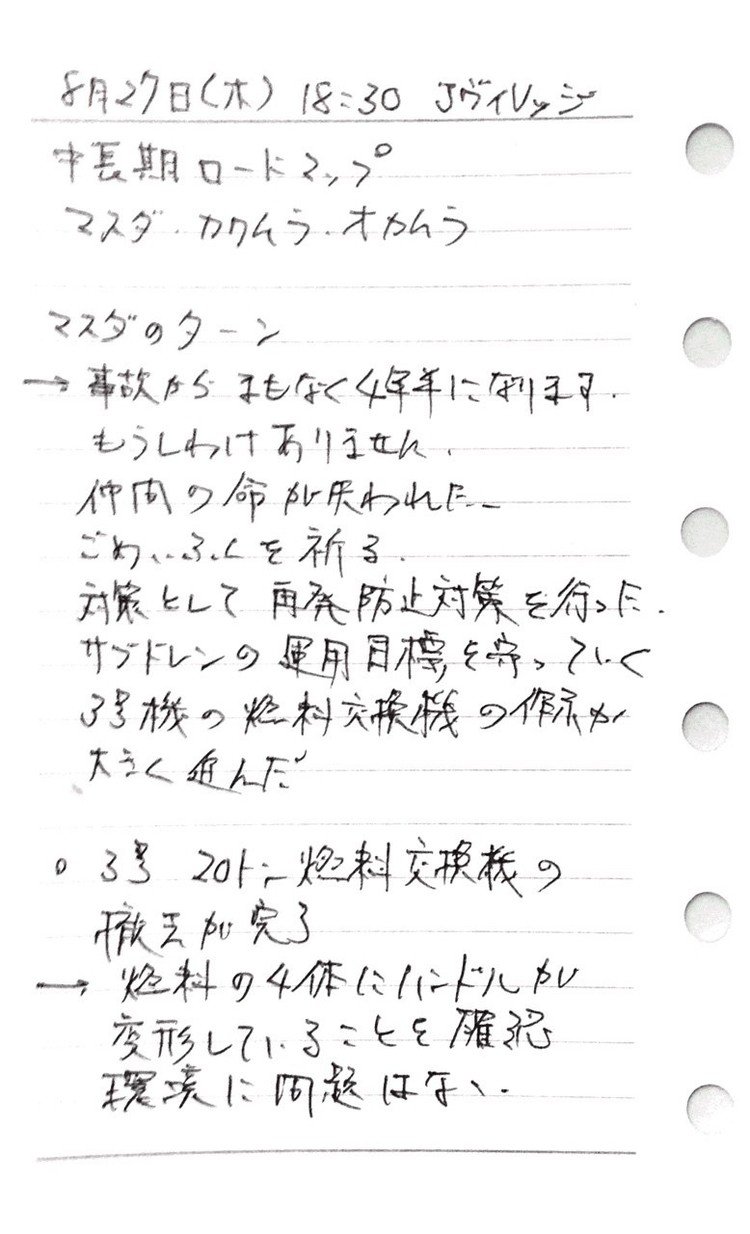 8月27日(木) 18:30 Jヴィレッジ
中長期ロードマップ
マスダ・カワムラ・オカムラ
マスダのターン
→ 事故から まもなく4年半になります.
もうしわけありません.
仲間の命が失われた
ごめいふくを祈る.
対策として 再発防止対策を行った.
サブドレンの運用目標を守っていく
3号機の燃料交換機の作業が
大きく進んだ
○ 3号 20トン燃料交換機の
撤去が完了
→ 燃料の4体にハンドルが
変形していることを確認
環境に問題はない.